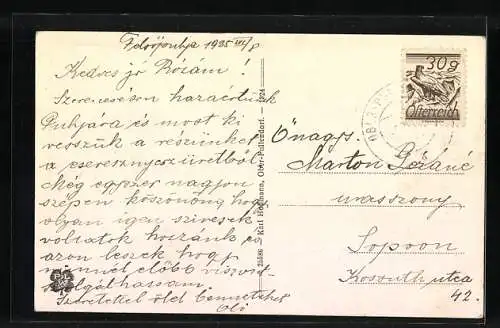 Felsőpulya 1925 VII/8
Kedves jó Rózám!
Szerencsésen hazaértünk
Pulyára és most ki
vesszük a részünket
a cseresznyeszüretből.
Még egyszer nagyon
szépen köszönöm hogy
olyan igen szívesek
voltatok hozzánk és
azon leszek hogy
minnél előbb viszont
szolgálhassam.
Szeretettel ölel benneteket
Karl Hofmann, Ober-Pullendorf. — 1924
25586
30g
Österreich
Önagys.
Marton Gézáné
urasszony
Sopron
Kossuth utca
42.